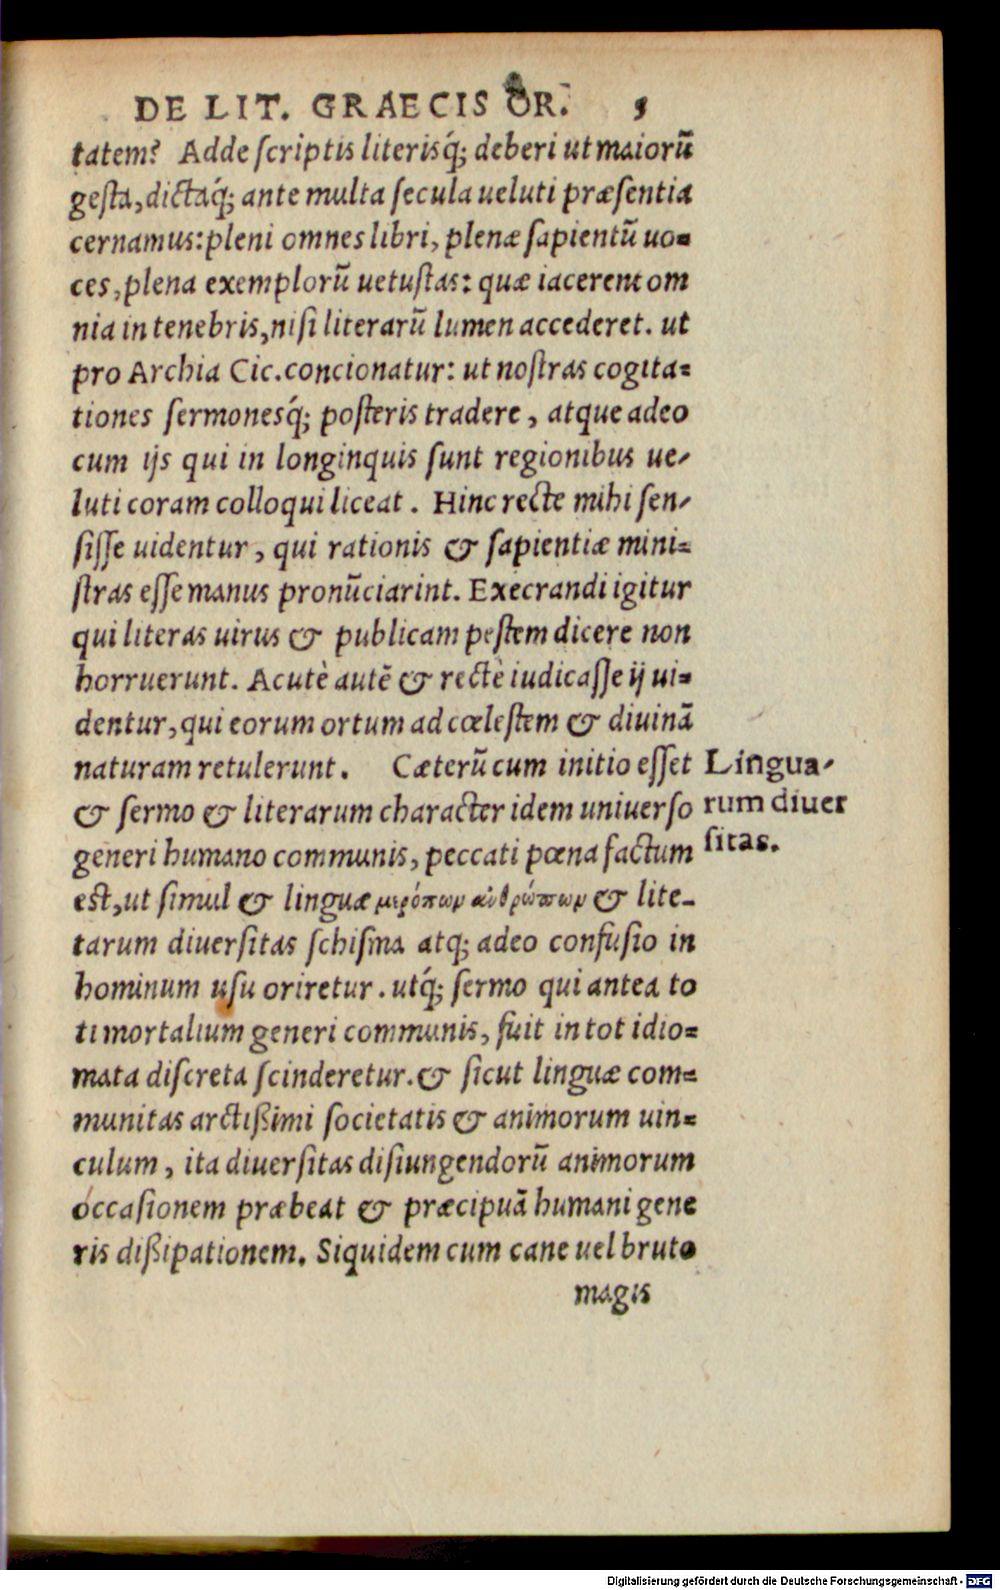 DE LIT. GRAECIS OR. 5
tatem? Adde ſcriptis literisq́; deberi ut maiorũ
geſta, dictaq́; ante multa ſecula ueluti præſentia
cernamus: pleni omnes libri, plenæ ſapientũ uo=
ces, plena exemplorũ uetuſtas: quæ iacerent om
nia in tenebris, niſi literarũ lumen accederet. ut
pro Archia Cic. concionatur: ut noſtras cogita=
tiones ſermonesq́; poſteris tradere, atque adeo
cum ijs qui in longinquis ſunt regionibus ue⸗
luti coram colloqui liceat. Hinc recte mihi ſen⸗
ſiſſe uidentur, qui rationis & ſapientiæ mini=
ſtras eſſe manus pronũciarint. Execrandi igitur
qui literas uirus & publicam peſtem dicere non
horruerunt. Acutè autẽ & rectè iudicaſſe ij ui=
dentur, qui eorum ortum ad cœleſtem & diuinã
naturam retulerunt. Cæterũ cum initio eſſet
& ſermo & literarum character idem uniuerſo
generi humano communis, peccati pœna factum
eſt, ut ſimul & linguæ μερόπων ἀνθρώπων & lite-
tarum diuerſitas ſchiſma atq; adeo confuſio in
hominum uſu oriretur. utq́; ſermo qui antea to
ti mortalium generi communis, fuit in tot idio=
mata diſcreta ſcinderetur. & ſicut linguæ com=
munitas arctißimi ſocietatis & animorum uin=
culum, ita diuerſitas diſiungendorũ animorum
occaſionem præbeat & præcipuã humani gene
ris dißipationem. Siquidem cum cane uel bruto
magis
Lingua⸗
rum diuer
ſitas.
Digitalisierung gefördert durch die Deutsche Forschungsgemeinschaft - DFG